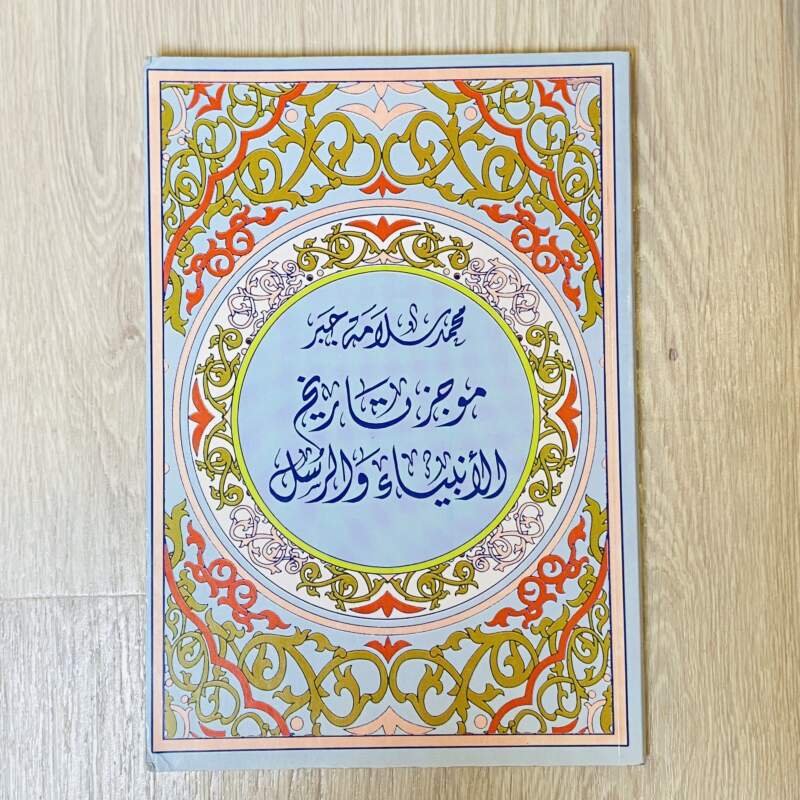 محمد سلامة جبر
موجز تاريخ
الأنبياء والرسل